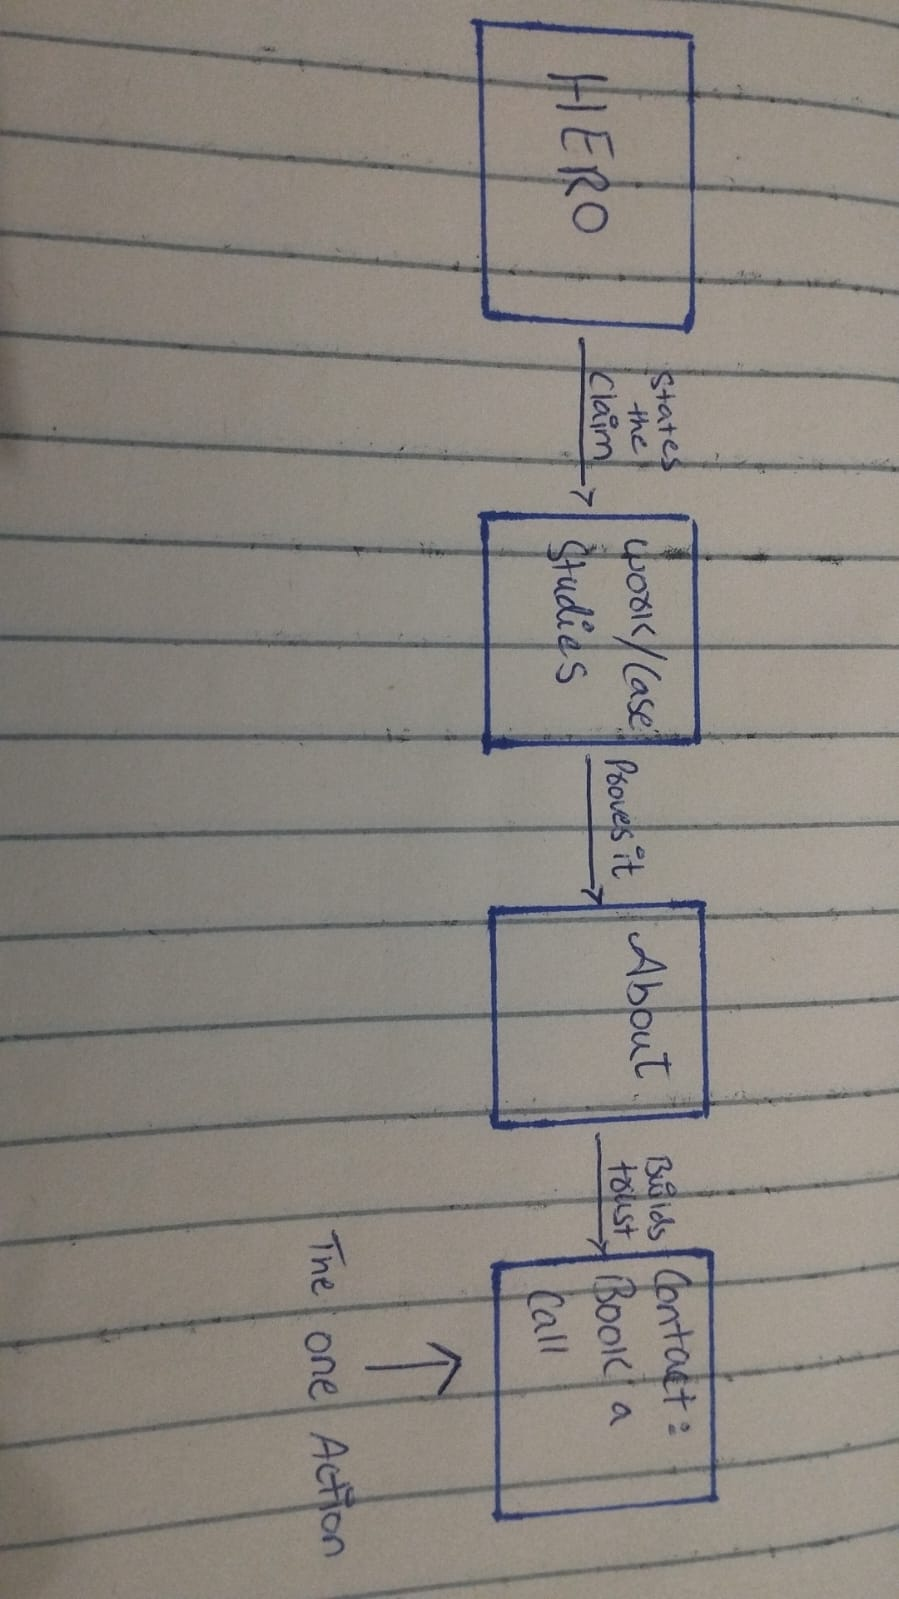 HERO
States
the
Claim
Work/Case
Studies
Proves it
About
Builds
trust
Contact:
Book a
Call
The one Action